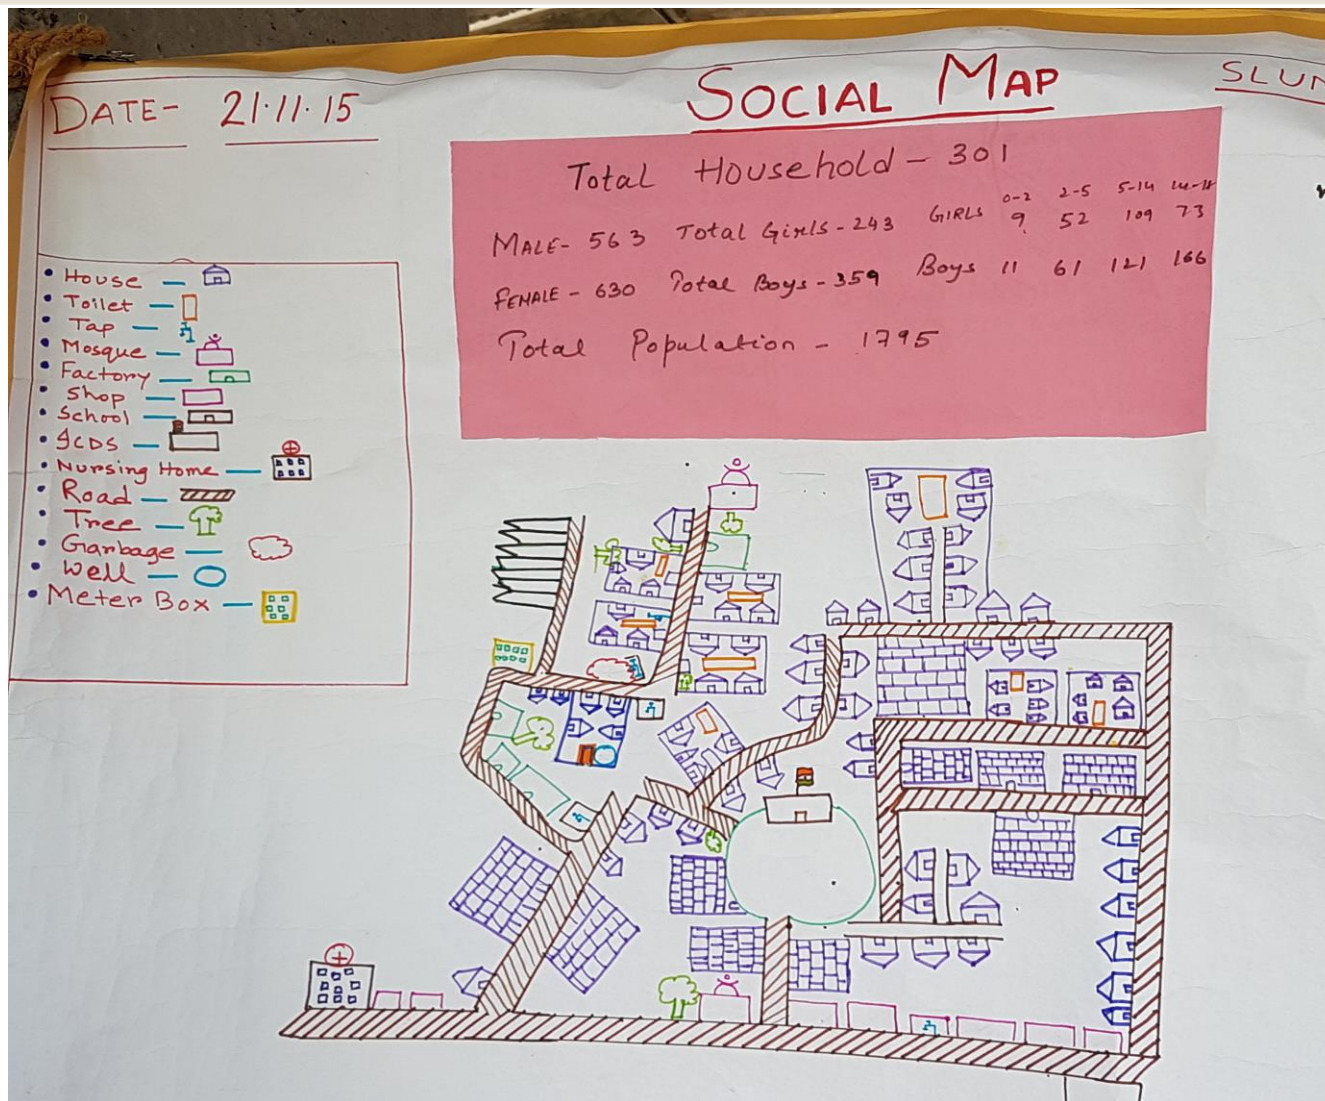 DATE- 21.11.15
SOCIAL MAP
SLUM
Total Household - 301
MALE- 563 Total Girls - 243 GIRLS 0-2 2-5 5-14 14-18
9 52 109 73
FEMALE - 630 Total Boys - 359 Boys 11 61 121 166
Total Population - 1795
House
Toilet
Tap
Mosque
Factory
Shop
School
ICDS
Nursing Home
Road
Tree
Garbage
Well
Meter Box